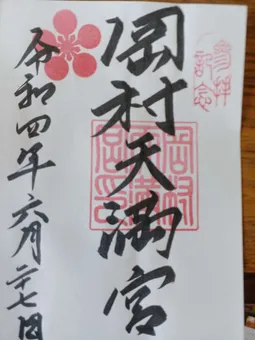 参拝
記念
岡村天満宮
令和四年六月二十七日